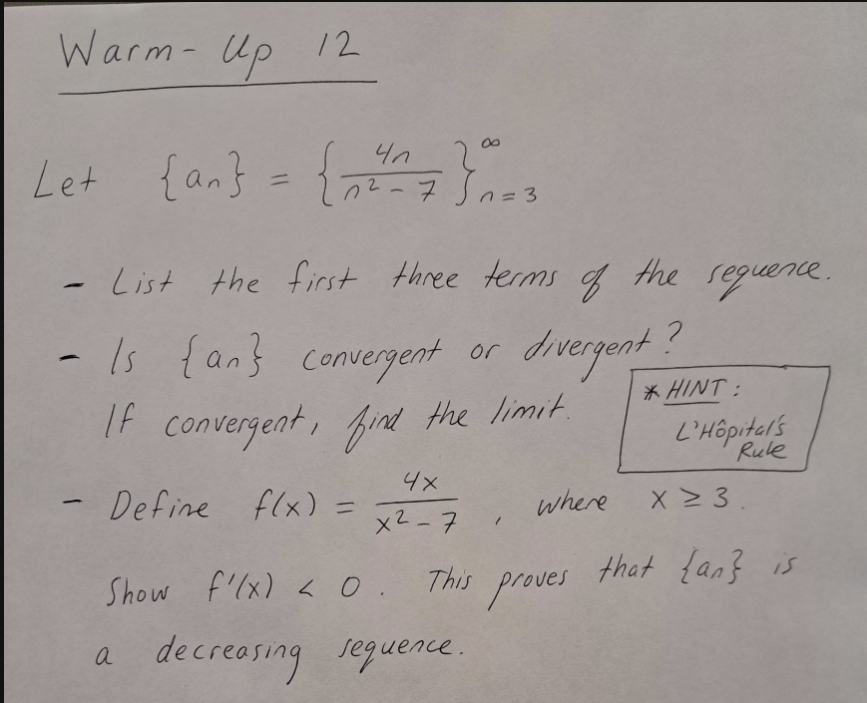 Warm-Up 12
Let {an} = {4n / n² - 7}∞n=3
- List the first three terms of the sequence.
- Is {an} convergent or divergent?
If convergent, find the limit.
* HINT:
L'Hôpital's
Rule
- Define f(x) = 4x / x² - 7, where x ≥ 3.
Show f'(x) < 0. This proves that {an} is
a decreasing sequence.